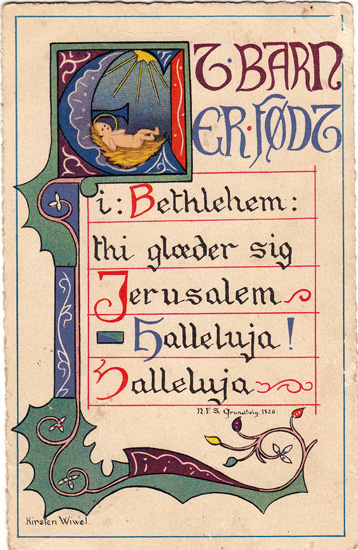 ET·BARN
ER·FØDT
i: Bethlehem:
thi glæder sig
Jerusalem
Halleluja!
Halleluja
N.F.S. Grundtvig. 1820.
Kirsten Wiwel.